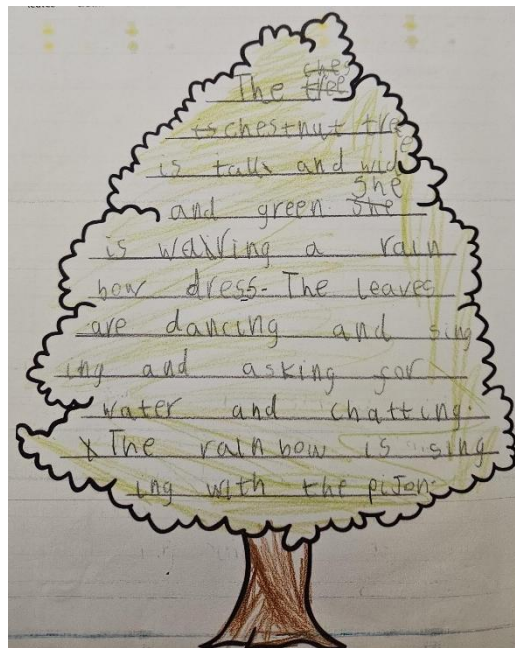 The tree
chestnut tree
is tall and wide
and green. She
is wearing a rain
bow dress. The leaves
are dancing and sing
ing and asking for
water and chatting.
The rainbow is sing
ing with the pijon.